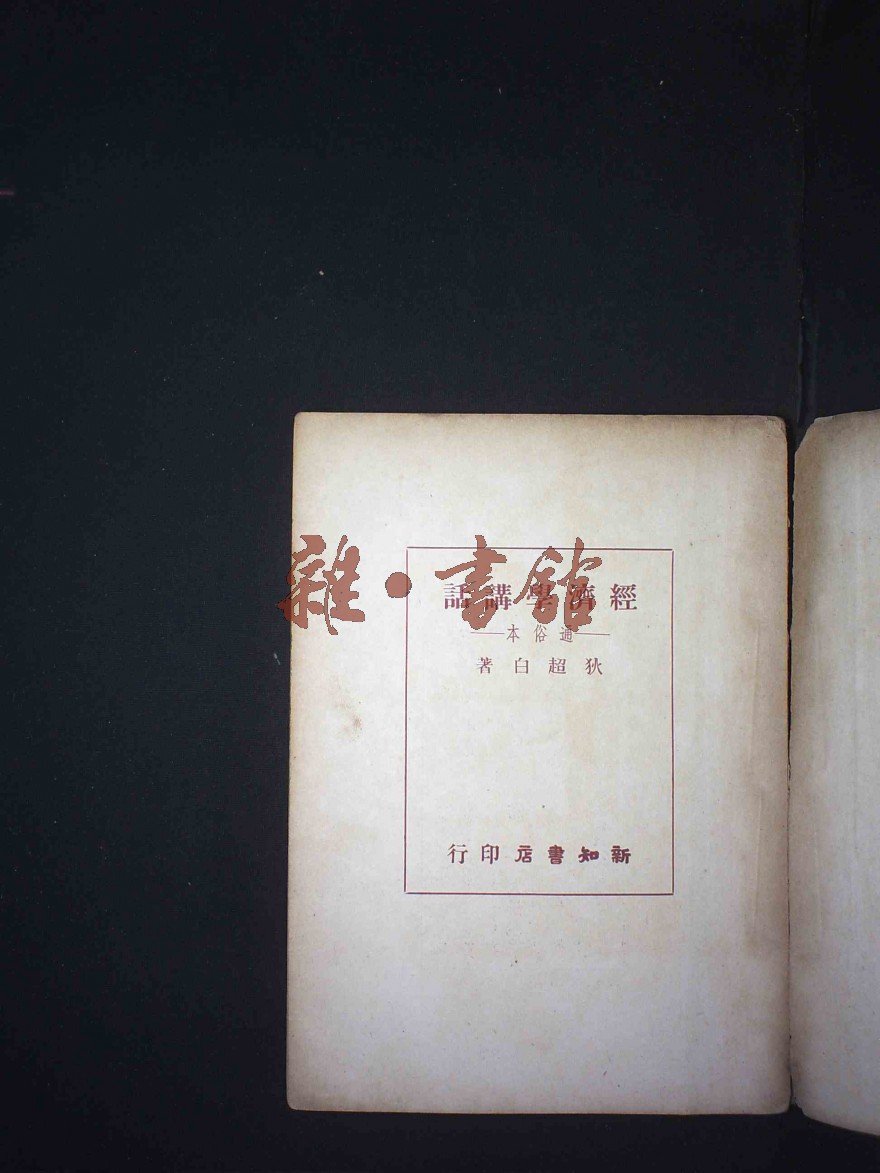 雜·書館
經濟學講話
——通俗本——
狄超白著
新知書店印行